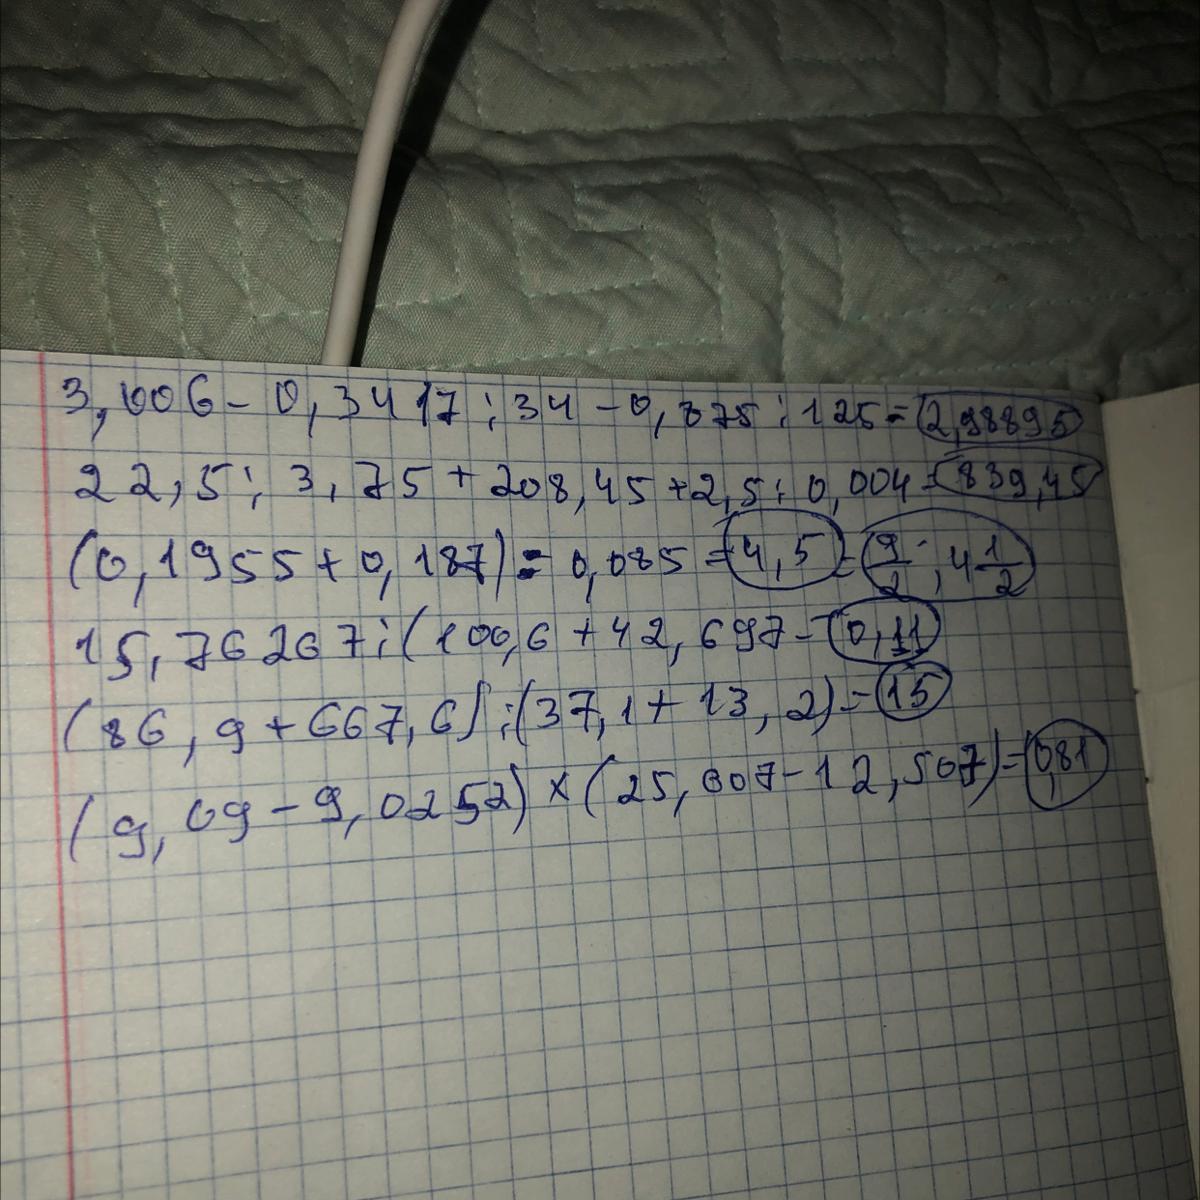 3,006 - 0,3417 : 34 - 0,875 : 125 = 2,98895
22,5 : 3,75 + 208,45 + 2,5 : 0,004 = 839,45
(0,1955 + 0,187) : 0,085 = 4,5 = 9/2 ; 4 1/2
15,76267 : (100,6 + 42,697 = 0,11
(86,9 + 667,6) : (37,1 + 13,2) = 15
(9,09 - 9,0252) × (25,007 - 12,507) = 0,81